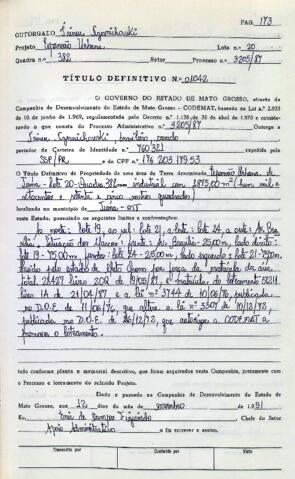 PAG. 173
OUTORGADO
Projeto Expansão Urbana Lote n.º 20
Quadra n.º 382 Setor Processo n.º 3205/87
TÍTULO DEFINITIVO N.º 01042
O GOVERNO DO ESTADO DE MATO GROSSO, através da
Companhia de Desenvolvimento do Estado de Mato Grosso - CODEMAT, baseado na Lei n.º 2.933
de 10 de junho de 1.969, regulamentada pelo Decreto n.º 1.138 de 30 de abril de 1.970 e considerando
o que consta do Processo Administrativo n.º 3205/87 Outorga a
brasileiro, casado
portador da Carteira de Identidade n.º 760321 expedida pela
SSP/PR e do CPF n.º 176 203 179 53
O Título Definitivo de Propriedade da sua área de Terra denominada Expansão Urbana de
Lote 20 - Quadra 382 industrial com 1.875,00 m² (hum mil e
oitocentos e setenta e cinco metros quadrados)
localizada no município de MT
neste Estado, possuindo os seguintes limites e confrontações:
Ao norte: lote 19, ao sul: lote 21, a leste: lote 24, a oeste: Av.
Brasília, 25,00m, lado direito:
lote 19 - 75,00m, fundos: lote 24 - 25,00m, lado esquerdo: lote 21 - 75,00m.
pelo estado de Mato Grosso por força da matrícula da área
total 28.427 livro 20Q de 19/05/87, e matrícula do loteamento 51211
livro 1A de 21/04/87 e a lei nº 3744 de 10/06/76, publicada
no D.O.E de 11/06/76, que altera a lei nº 3307 de 10/12/72,
publicada no D.O.E. de 26/12/72, que autoriza a CODEMAT a
promover o loteamento.
tudo conforme planta e memorial descritivo, que foram arquivados nesta Companhia, juntamente com
o Processo e loteamento do referido Projeto.
Dado e passado na Companhia de Desenvolvimento do Estado de
Mato Grosso, aos 12 dias do mês de novembro de 1991
Eu, Figueiredo Chefe do Setor
Apoio Administrativo o fiz escrever e assino.
Transcrito por Conferido por Visto